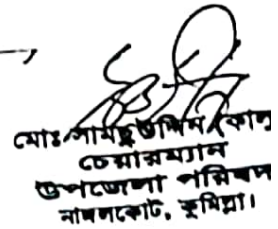 মোঃ সামছু উদ্দিন (কালু
চেয়ারম্যান
উপজেলা পরিষদ
নাঙ্গলকোট, কুমিল্লা।